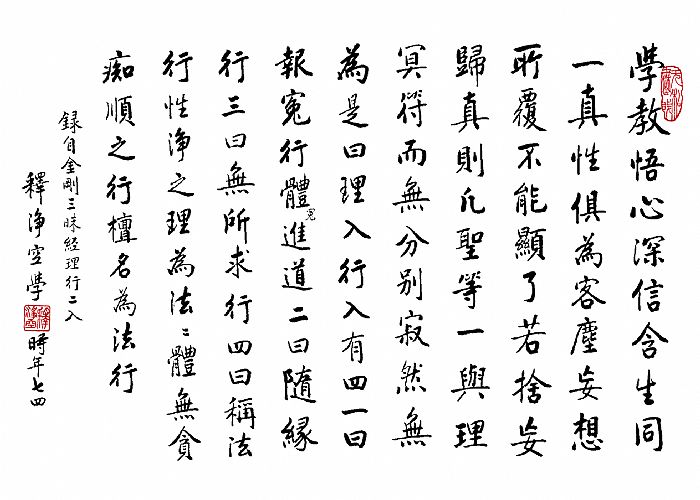 學教悟心深信含生同
一真性俱為客塵妄想
所覆不能顯了若捨妄
歸真則凡聖等一與理
冥符而無分別寂然無
為是曰理入行入有四一曰
報冤行體冤進道二曰隨緣
行三曰無所求行四曰稱法
行性淨之理為法〻體無貪
痴順之行檀名為法行
錄自金剛三昧經理行二入
釋淨空學 時年七四